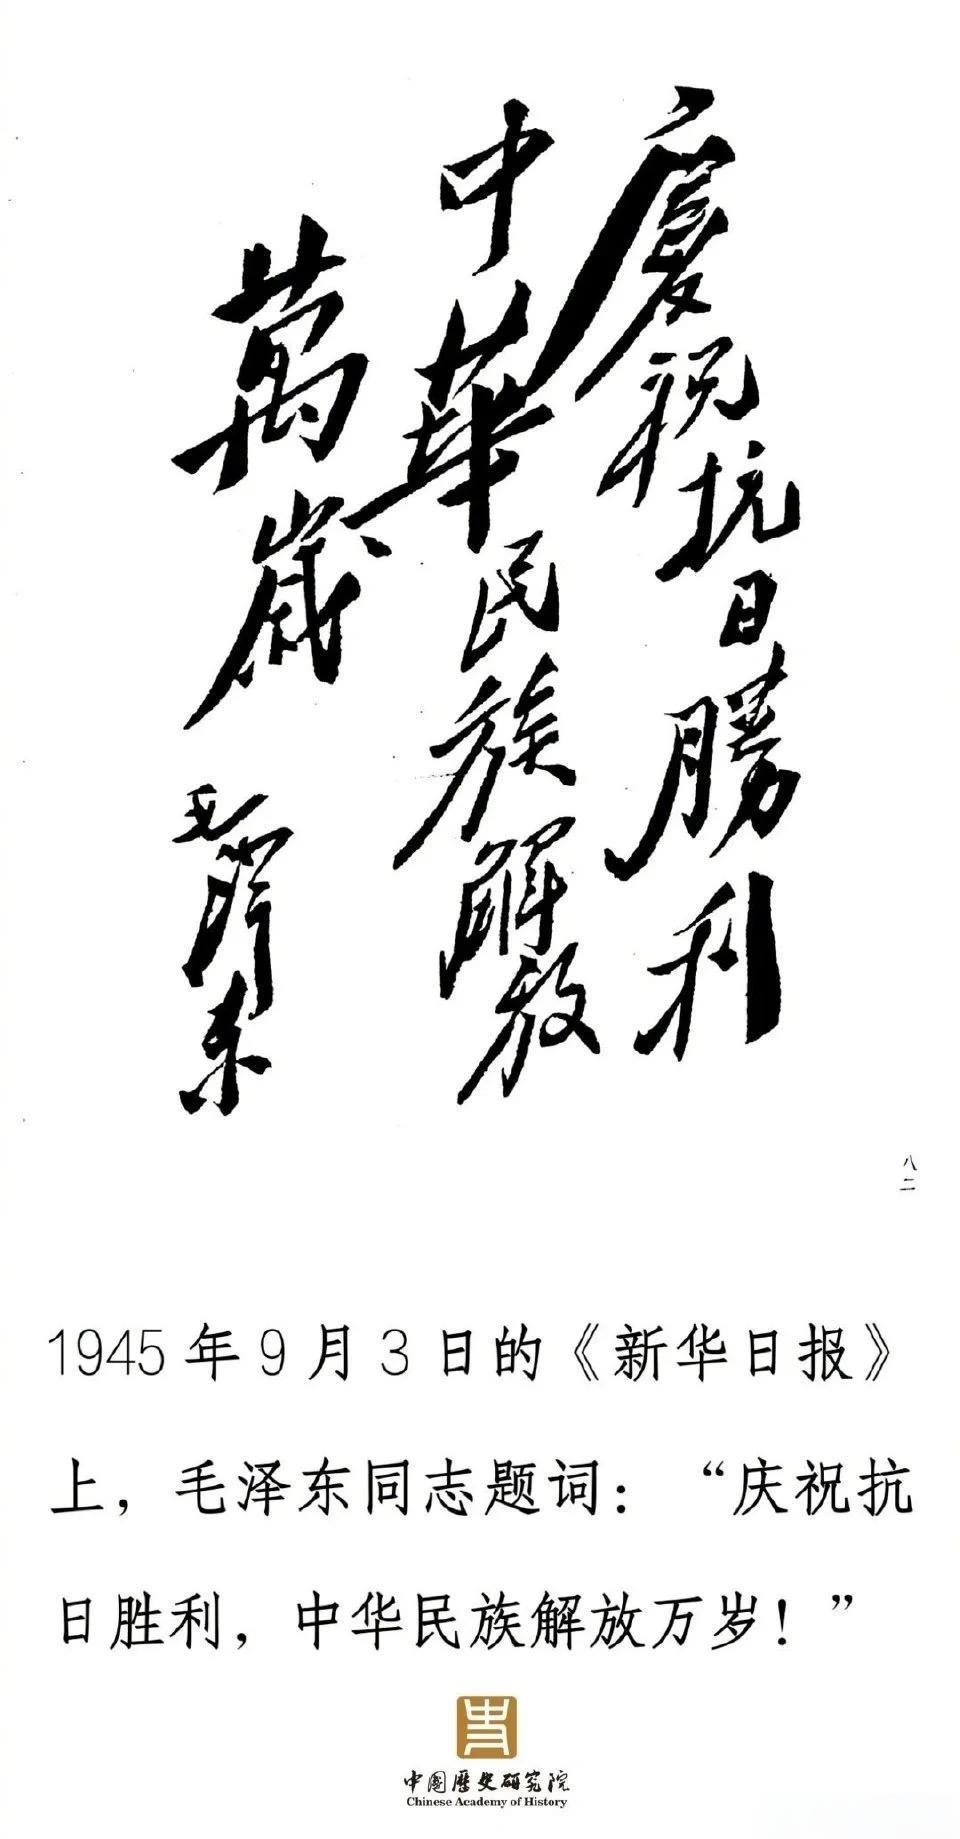 慶祝抗日勝利
中華民族解放
萬歲
毛澤东
八二
1945年9月3日的《新华日报》
上，毛泽东同志题词：“庆祝抗
日胜利，中华民族解放万岁！”
中国历史研究院
Chinese Academy of History